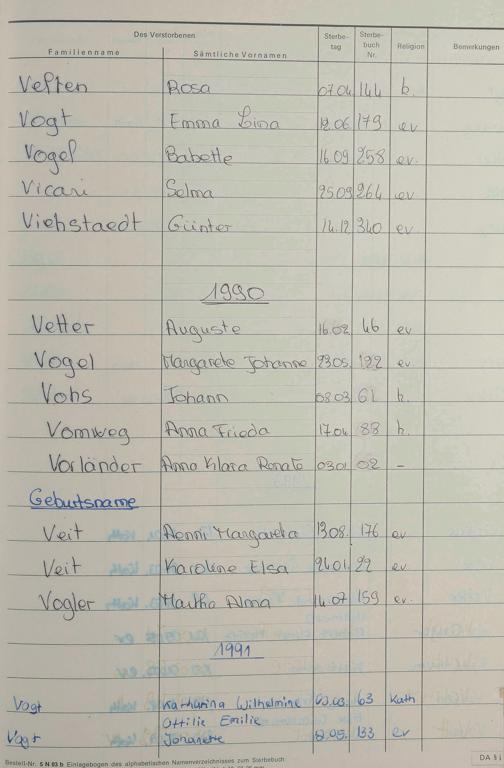 Des Verstorbenen
Familienname Sämtliche Vornamen Sterbetag Sterbebuch Nr. Religion Bemerkungen
Velten Rosa 07.04 144 k.
Vogt Emma Lina 12.06 179 ev
Vogel Babette 16.09 258 ev.
Vicari Selma 25.09 264 ev
Viehstaedt Günter 14.12 340 ev
1990
Vetter Auguste 16.02 46 ev
Vogel Margarete Johanne 23.05. 122 ev.
Vohs Johann 08.03 61 k.
Vomweg Anna Frieda 17.04 88 k.
Vorländer Anna Klara Renate 03.01 02 -
Geburtsname
Veit Aenni Margareta 13.08. 176 ev
Veit Karoline Elsa 24.01. 22 ev.
Vogler Martha Alma 14.07 159 ev.
1991
Vogt Katharina Wilhelmine 03.03. 63 Kath
Ottilie Emilie
Vogt Johanette 12.05. 133 ev
Bestell-Nr. S N 03 b Einlegebogen des alphabetischen Namenverzeichnisses zum Sterbebuch
DA §